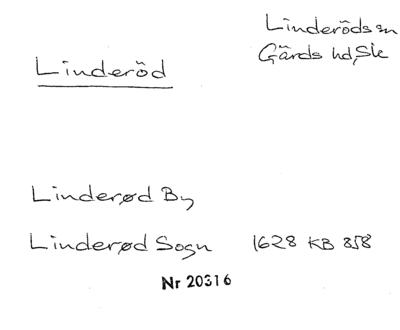 Linderöds sn
Gärds hd, Sk
Linderöd
Linderød By
Linderød Sogn 1628 KB 858
Nr 20316